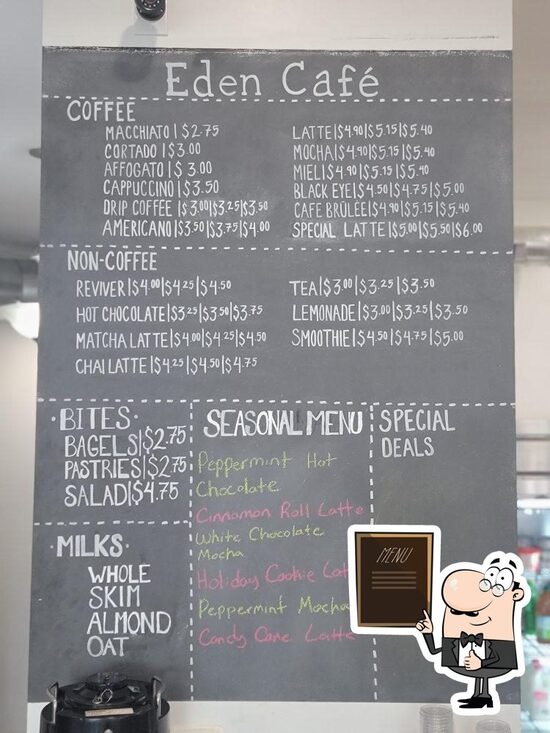 Eden Café
COFFEE
MACCHIATO | $2.75
CORTADO | $3.00
AFFOGATO | $3.00
CAPPUCCINO | $3.50
DRIP COFFEE | $3.00 | $3.25 | $3.50
AMERICANO | $3.50 | $3.75 | $4.00
LATTE | $4.90 | $5.15 | $5.40
MOCHA | $4.90 | $5.15 | $5.40
MIEL | $4.90 | $5.15 | $5.40
BLACK EYE | $4.50 | $4.75 | $5.00
CAFE BRÛLEE | $4.90 | $5.15 | $5.40
SPECIAL LATTE | $5.00 | $5.50 | $6.00
NON-COFFEE
REVIVER | $4.00 | $4.25 | $4.50
HOT CHOCOLATE | $3.25 | $3.50 | $3.75
MATCHA LATTE | $4.00 | $4.25 | $4.50
CHAI LATTE | $4.25 | $4.50 | $4.75
TEA | $3.00 | $3.25 | $3.50
LEMONADE | $3.00 | $3.25 | $3.50
SMOOTHIE | $4.50 | $4.75 | $5.00
·BITES·
BAGELS | $2.75
PASTRIES | $2.75
SALAD | $4.75
·MILKS·
WHOLE
SKIM
ALMOND
OAT
SEASONAL MENU
Peppermint Hot
Chocolate
Cinnamon Roll Latte
White Chocolate
Mocha
Holiday Cookie Lat
Peppermint Mocha
Candy Cane Latte
SPECIAL
DEALS
MENU